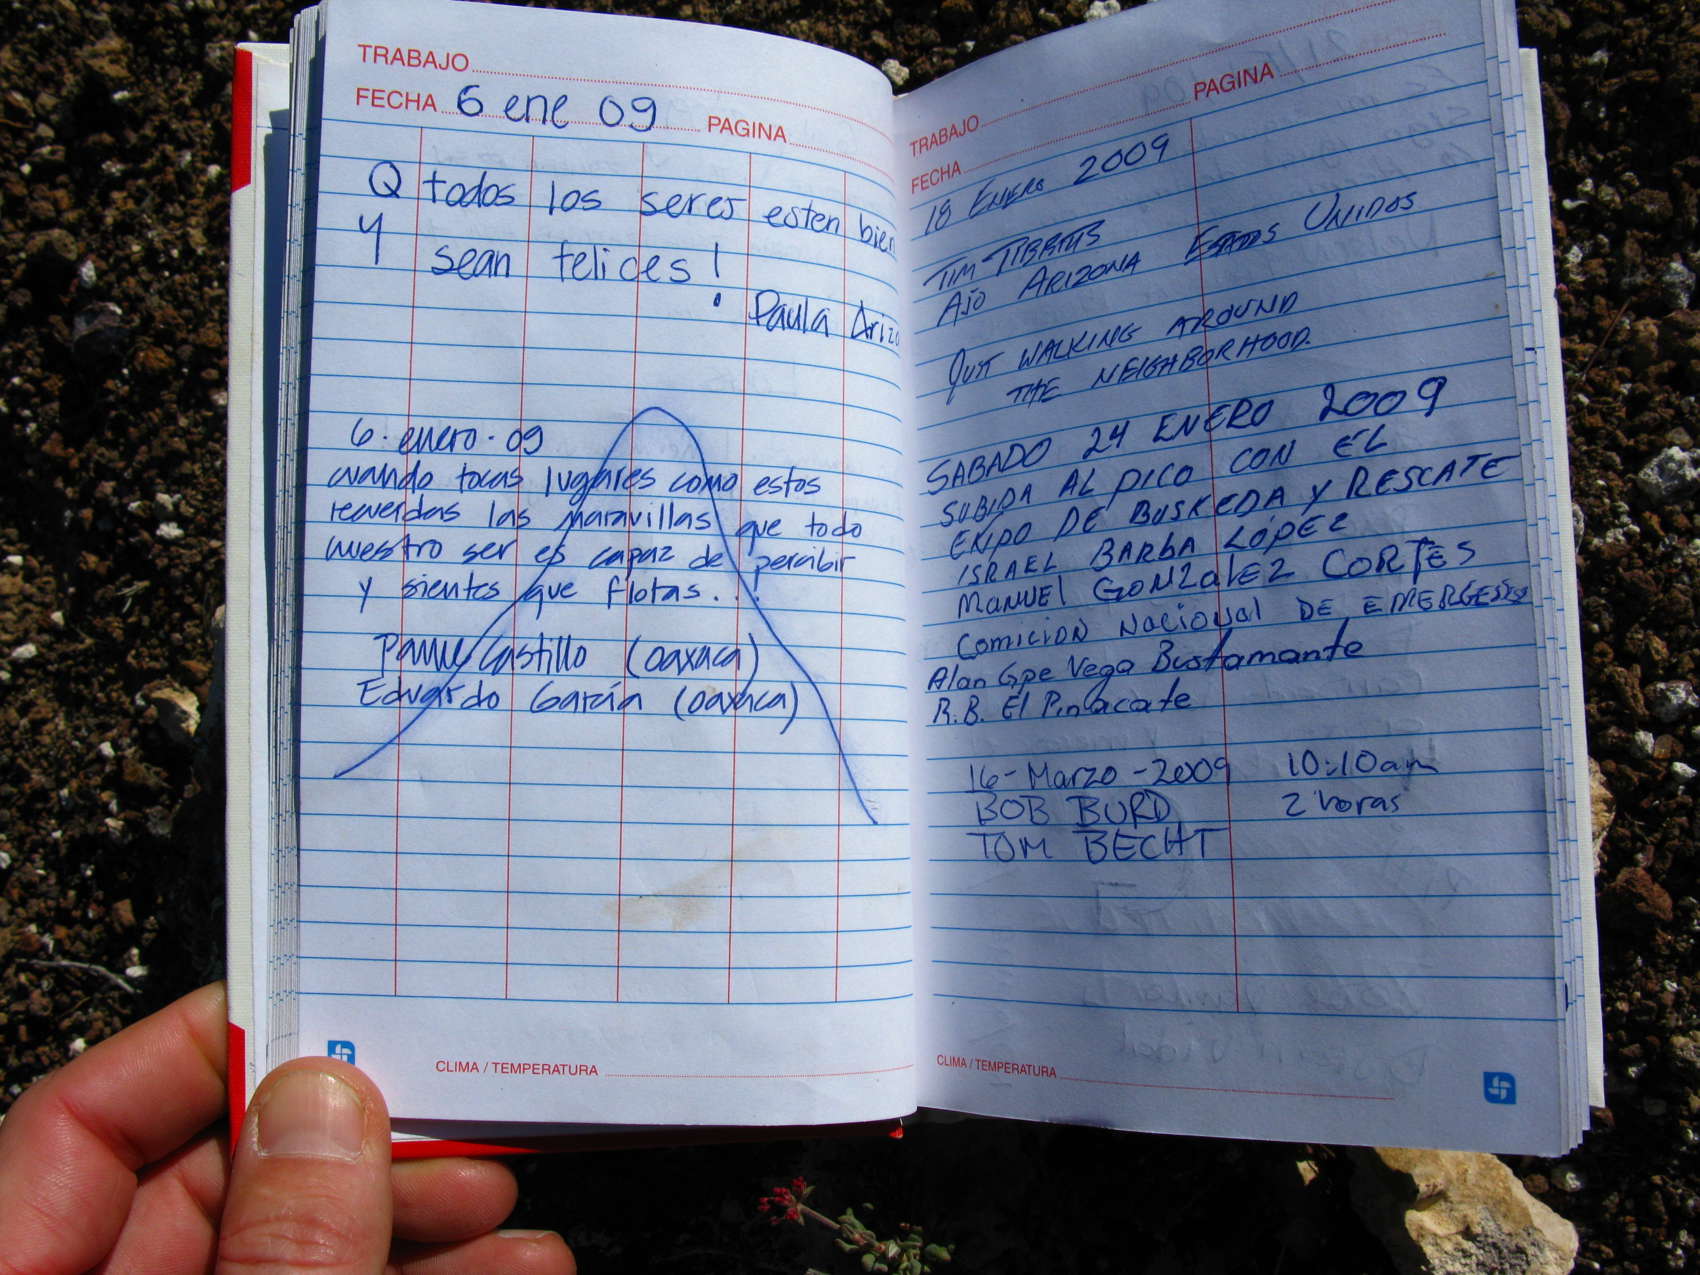 TRABAJO
FECHA 6 ene 09 PAGINA
Q todos los seres esten bien
Y sean felices!
Paula Ariz
6.enero.09
cuando tocas lugares como estos
recuerdas las maravillas que todo
nuestro ser es capaz de percibir
y sientes que flotas...
Castillo (oaxaca)
Eduardo García (oaxaca)
CLIMA / TEMPERATURA
TRABAJO
FECHA PAGINA
18 ENERO 2009
TIM TIBBITTS
AJO ARIZONA ESTADOS UNIDOS
JUST WALKING AROUND
THE NEIGHBORHOOD.
SABADO 24 ENERO 2009
SUBIDA AL PICO CON EL
EKIPO DE BUSKEDA Y RESCATE
ISRAEL BARBA LÓPEZ
MANUEL GONZALEZ CORTES
COMICION NACIONAL DE
Alan Gpe Vega Bustamante
R.B. El Pinacate
16-Marzo-2009 10:10am
BOB BURD 2 horas
TOM BECHT
CLIMA / TEMPERATURA